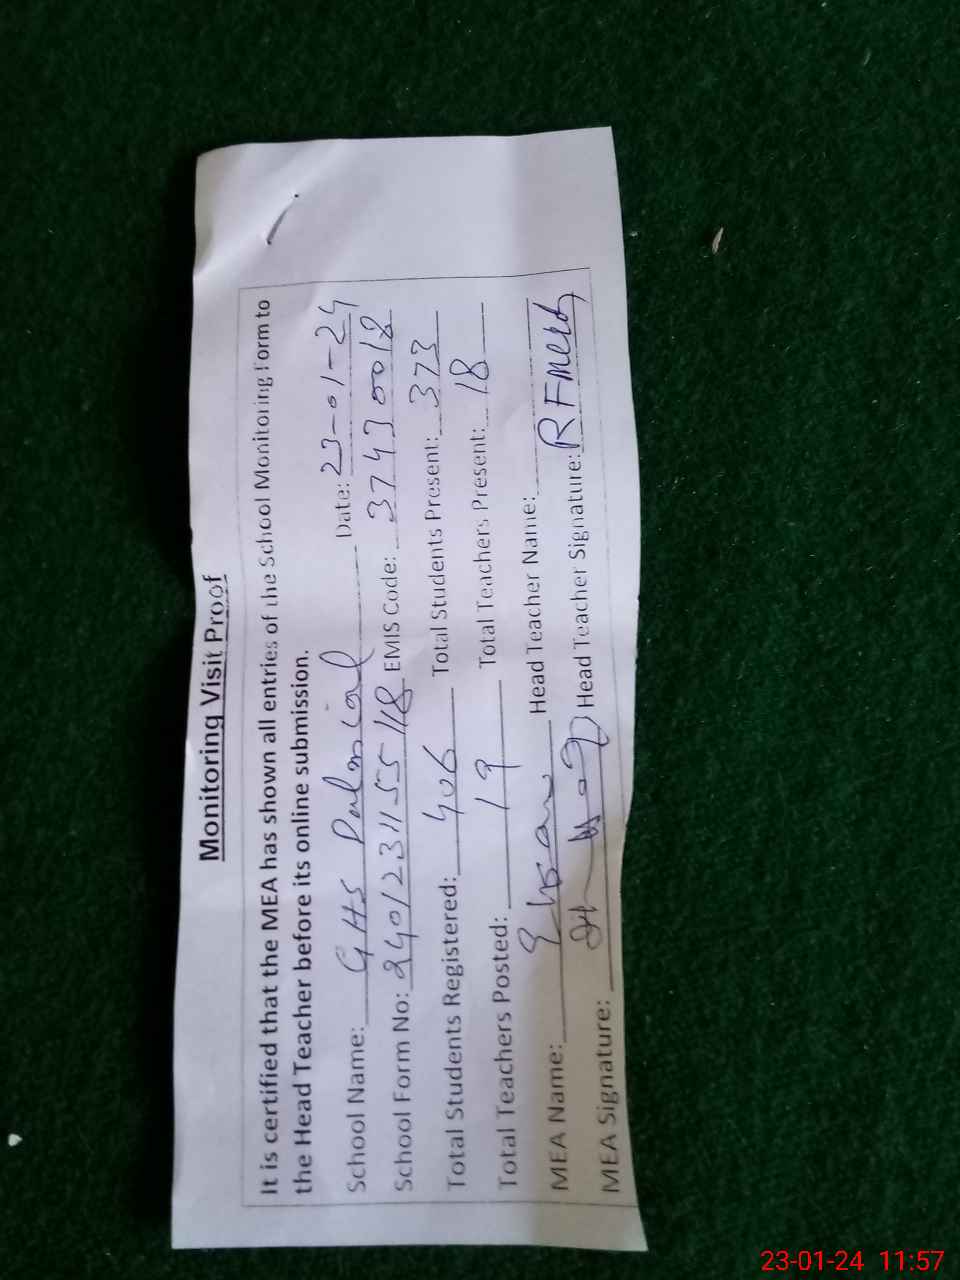 Monitoring Visit Proof
It is certified that the MEA has shown all entries of the School Monitoring Form to
the Head Teacher before its online submission.
School Name: GHS Date: 23-01-24
School Form No: 2401231155118 EMIS Code: 37430018
Total Students Registered: 406 Total Students Present: 373
Total Teachers Posted: 19 Total Teachers Present: 18
MEA Name: Head Teacher Name:
MEA Signature: Head Teacher Signature:
23-01-24 11:57